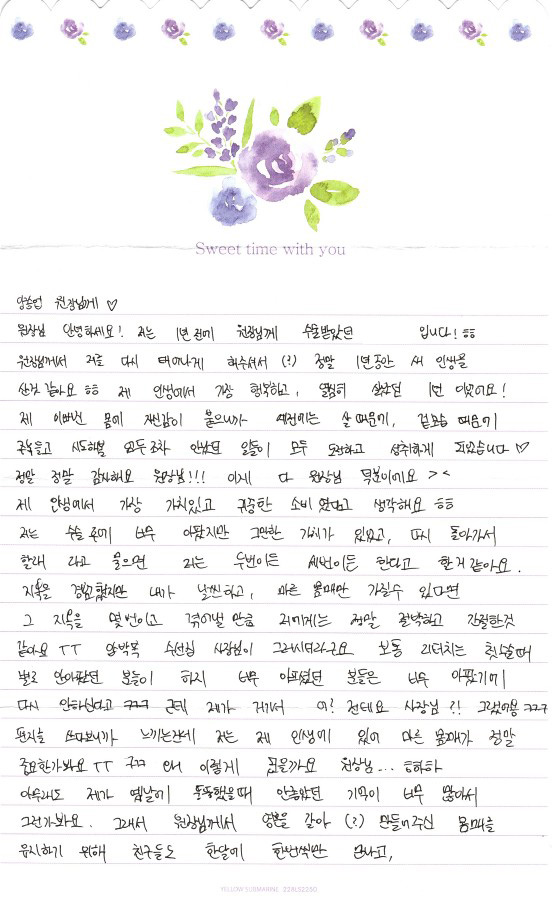 Sweet time with you
원장님께 ♡
원장님 안녕하세요! 저는 1년 전에 원장님께 수술받았던 입니다! ㅎㅎ
원장님께서 저를 다시 태어나게 해주셔서 (?) 정말 1년동안 새 인생을
산것 같아요 ㅎㅎ 제 인생에서 가장 행복하고, 열심히 살았던 1년 이었어요!
제 이뻐진 몸에 자신감이 붙으니까 예전에는 살 때문에, 겉모습 때문에
주눅들고 시도해볼 엄두조차 안났던 일들이 모두 도전하고 성취하게 되었습니다 ♡
정말 정말 감사해요 원장님!!! 이게 다 원장님 덕분이에요 > <
제 인생에서 가장 가치있고 귀중한 소비였다고 생각해요 ㅎㅎ
저는 수술 후에 너무 아팠지만 그만한 가치가 있었고, 다시 돌아가서
할래 라고 물으면 저는 두번이든 세번이든 한다고 할거 같아요.
지옥을 경험했지만 내가 날씬하고, 마른 몸매만 가질수 있다면
그 지옥을 몇 번이고 겪어낼 만큼 저에게는 정말 절박하고 간절한것
같아요 ㅜㅜ 압박복 수선집 사장님이 그러시더라구요 보통 리터치는 첫수술때
별로 안아팠던 분들이 하지 너무 아프셨던 분들은 너무 아팠기에
다시 안하신다고 ㅋㅋㅋ 근데 제가 거기서 어? 전데요 사장님?! 그랬어용 ㅋㅋㅋ
편지를 쓰다보니까 느끼는건데 저는 제 인생에 있어 마른 몸매가 정말
중요한가봐요 ㅜㅜ ㅋㅋㅋ 왜 이렇게 됐을까요 원장님... ㅎㅎㅎ
아무래도 제가 옛날에 뚱뚱했을때 안좋았던 기억이 너무 많아서
그런가봐요. 그래서 원장님께서 영혼을 갈아 (?) 만들어주신 몸매를
유지하기 위해 친구들도 한달에 한번씩만 만나고,
YELLOW SUBMARINE